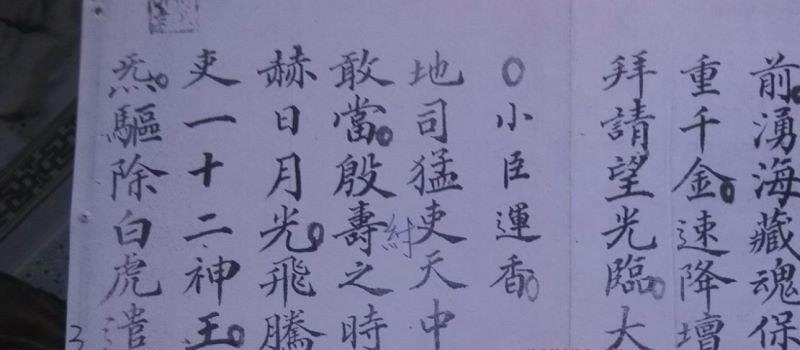 前。湧海藏魂保
重千金。速降壇
拜請望光臨。大
○小臣運香。
地司猛吏天中
敢當。殷壽之時
紂
赫日月光。飛騰
吏一十二神王。
炁。驅除白虎遣
3